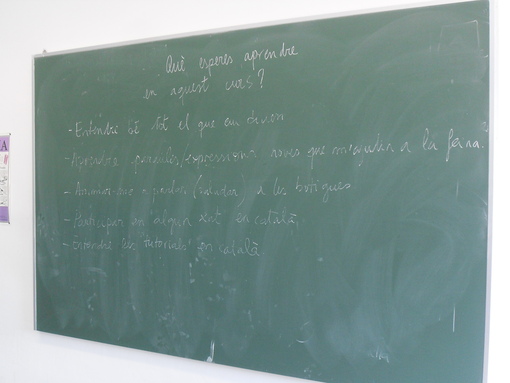 Què esperes aprendre
en aquest curs?
- Entendre bé tot el que em diuen
- Aprendre paraules/expressions noves que m'ajudin a la feina.
- Animar-me a parlar (saludar) a les botigues
- Participar en algun xat en català
- Entendre els tutorials en català
A